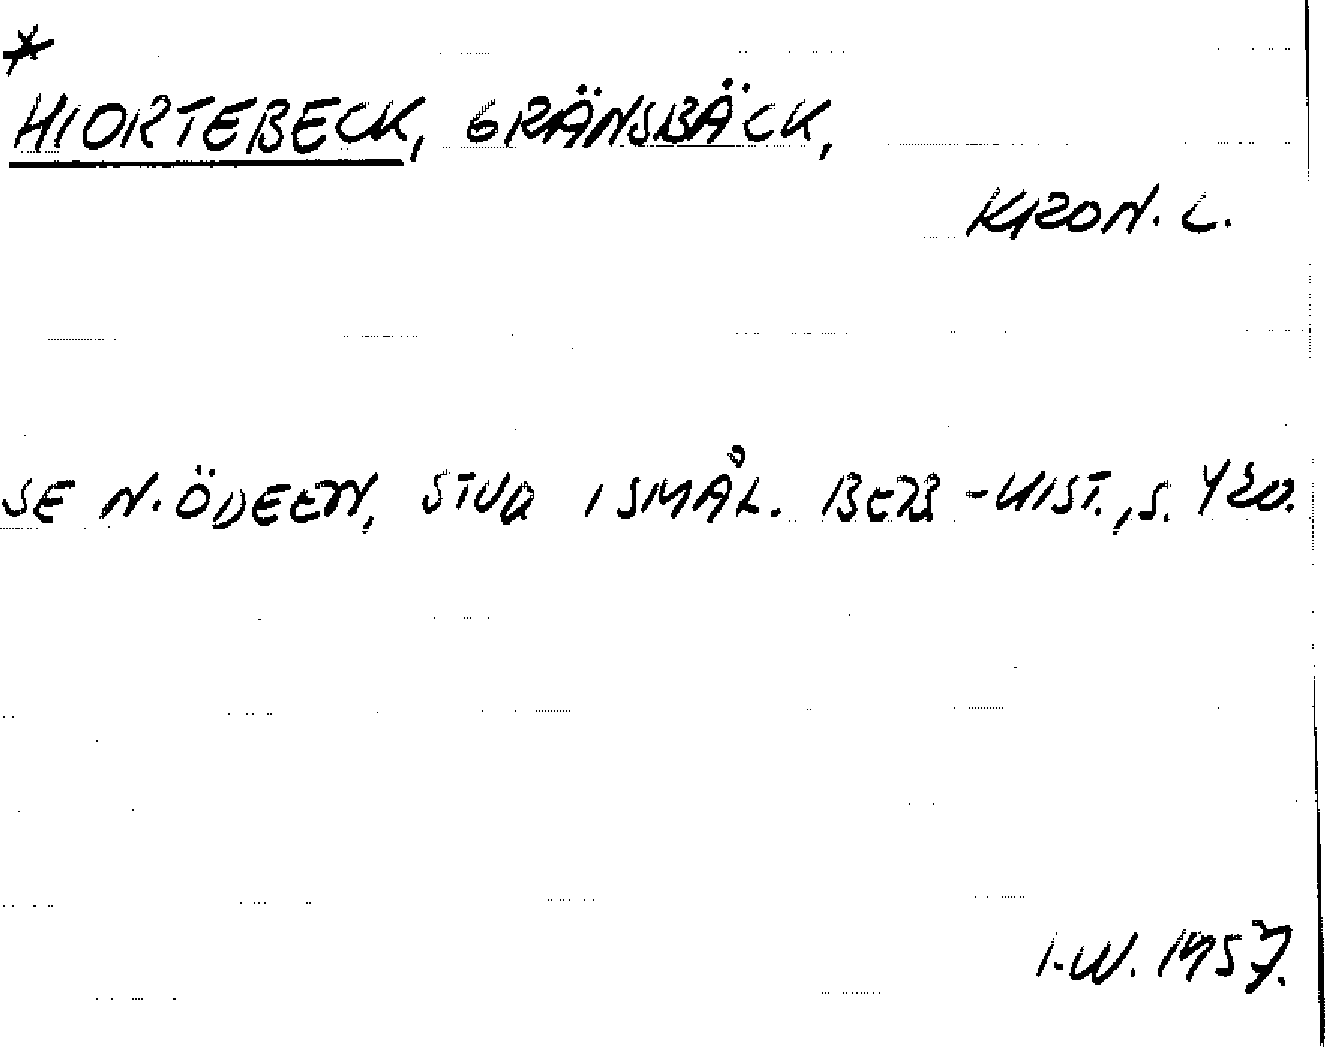 *
HIORTEBECK, GRÄNSBÄCK,
KRON. L.
SE N. ÖDEEN, STUD I SMÅL. BEB-HIST., S. 420.
I.W. 1957.